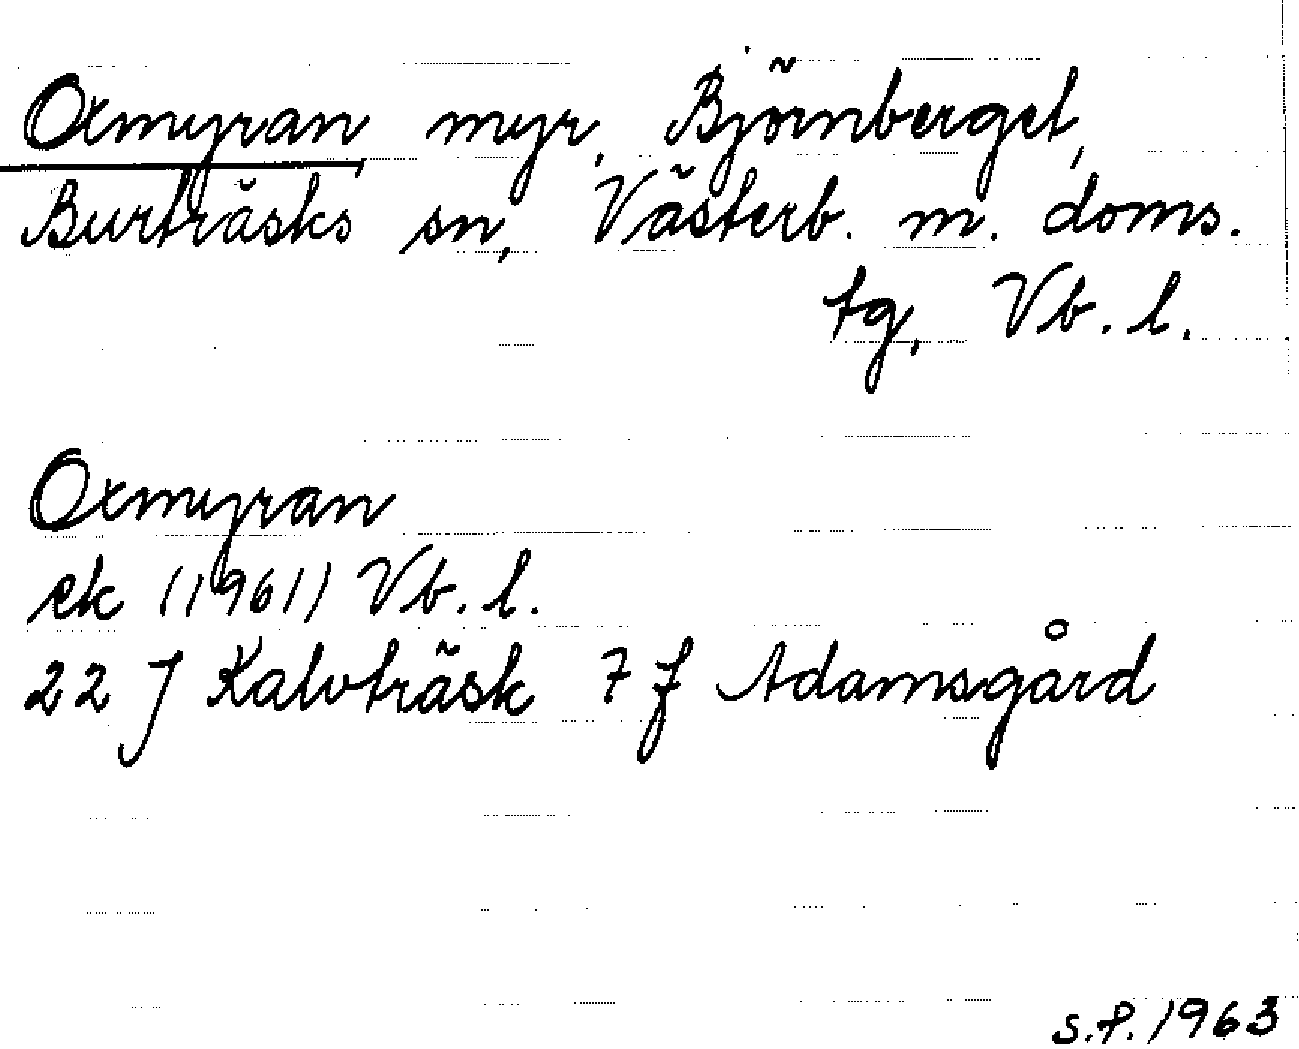 Oxmyran myr, Björnberget,
Burträsks sn, Västerb. m. doms.
tg, Vb. l.
Oxmyran
ek (1961) Vb. l.
22 J Kalvträsk 7 f Adamsgård
S.P. 1963